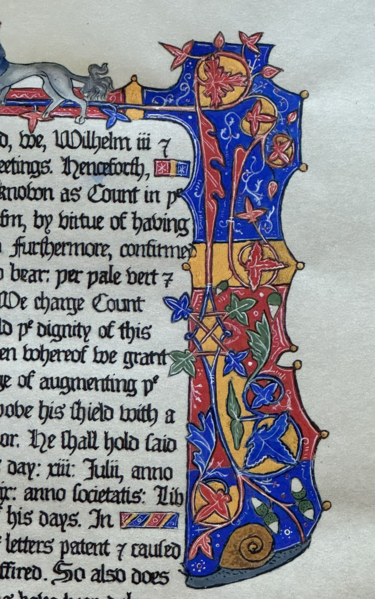 d, we, Wilhelm iii ⁊
eetings. Henceforth,
known as Count in yᵉ
fm, by virtue of having
Furthermore, confirmed
bear: per pale vert ⁊
We charge Count
ld yᵉ dignity of this
en whereof we grant
ge of augmenting yᵉ
hobe his shield with a
or. He shall hold said
day: xiii: Julii, anno
x: anno societatis: Lib
his days. In
letters patent ⁊ caused
ffixed. So also does